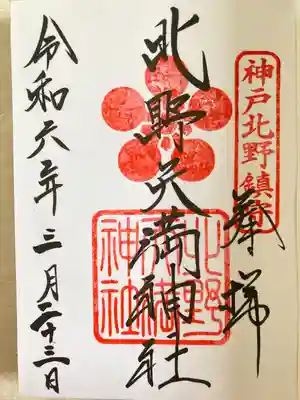 神戸北野鎮座
奉拝
北野天満神社
北野天満神社
令和六年三月二十三日